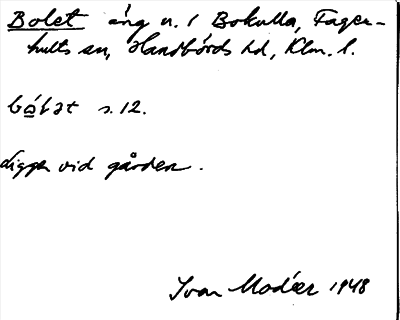 Bolet äng n. 1 Bokulla, Fager-
hults sn, Handbörds hd, Klm. l.
bó̲lət s. 12.
Ligger vid gården.
Ivar Modéer 1948